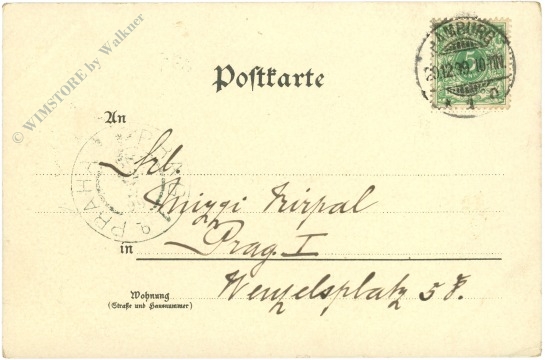 © WIMSTORE by Walkner
HAMBURG
29.12.99.10-11N.
* 1 n
Postkarte
An
PRAHA
PRAG
Frl.
Mizzi Kirpal
in Prag. I
Wohnung
(Straße und Hausnummer)
Wenzelsplatz 58.